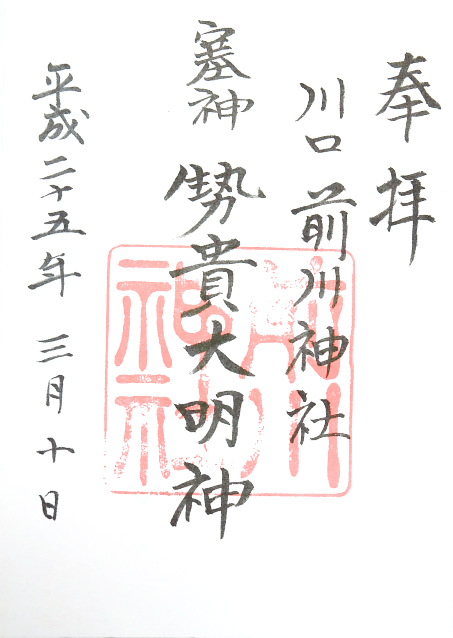 奉拝
川口 前川神社
塞神 勢貴大明神
平成二十五年 三月十日
前川神社